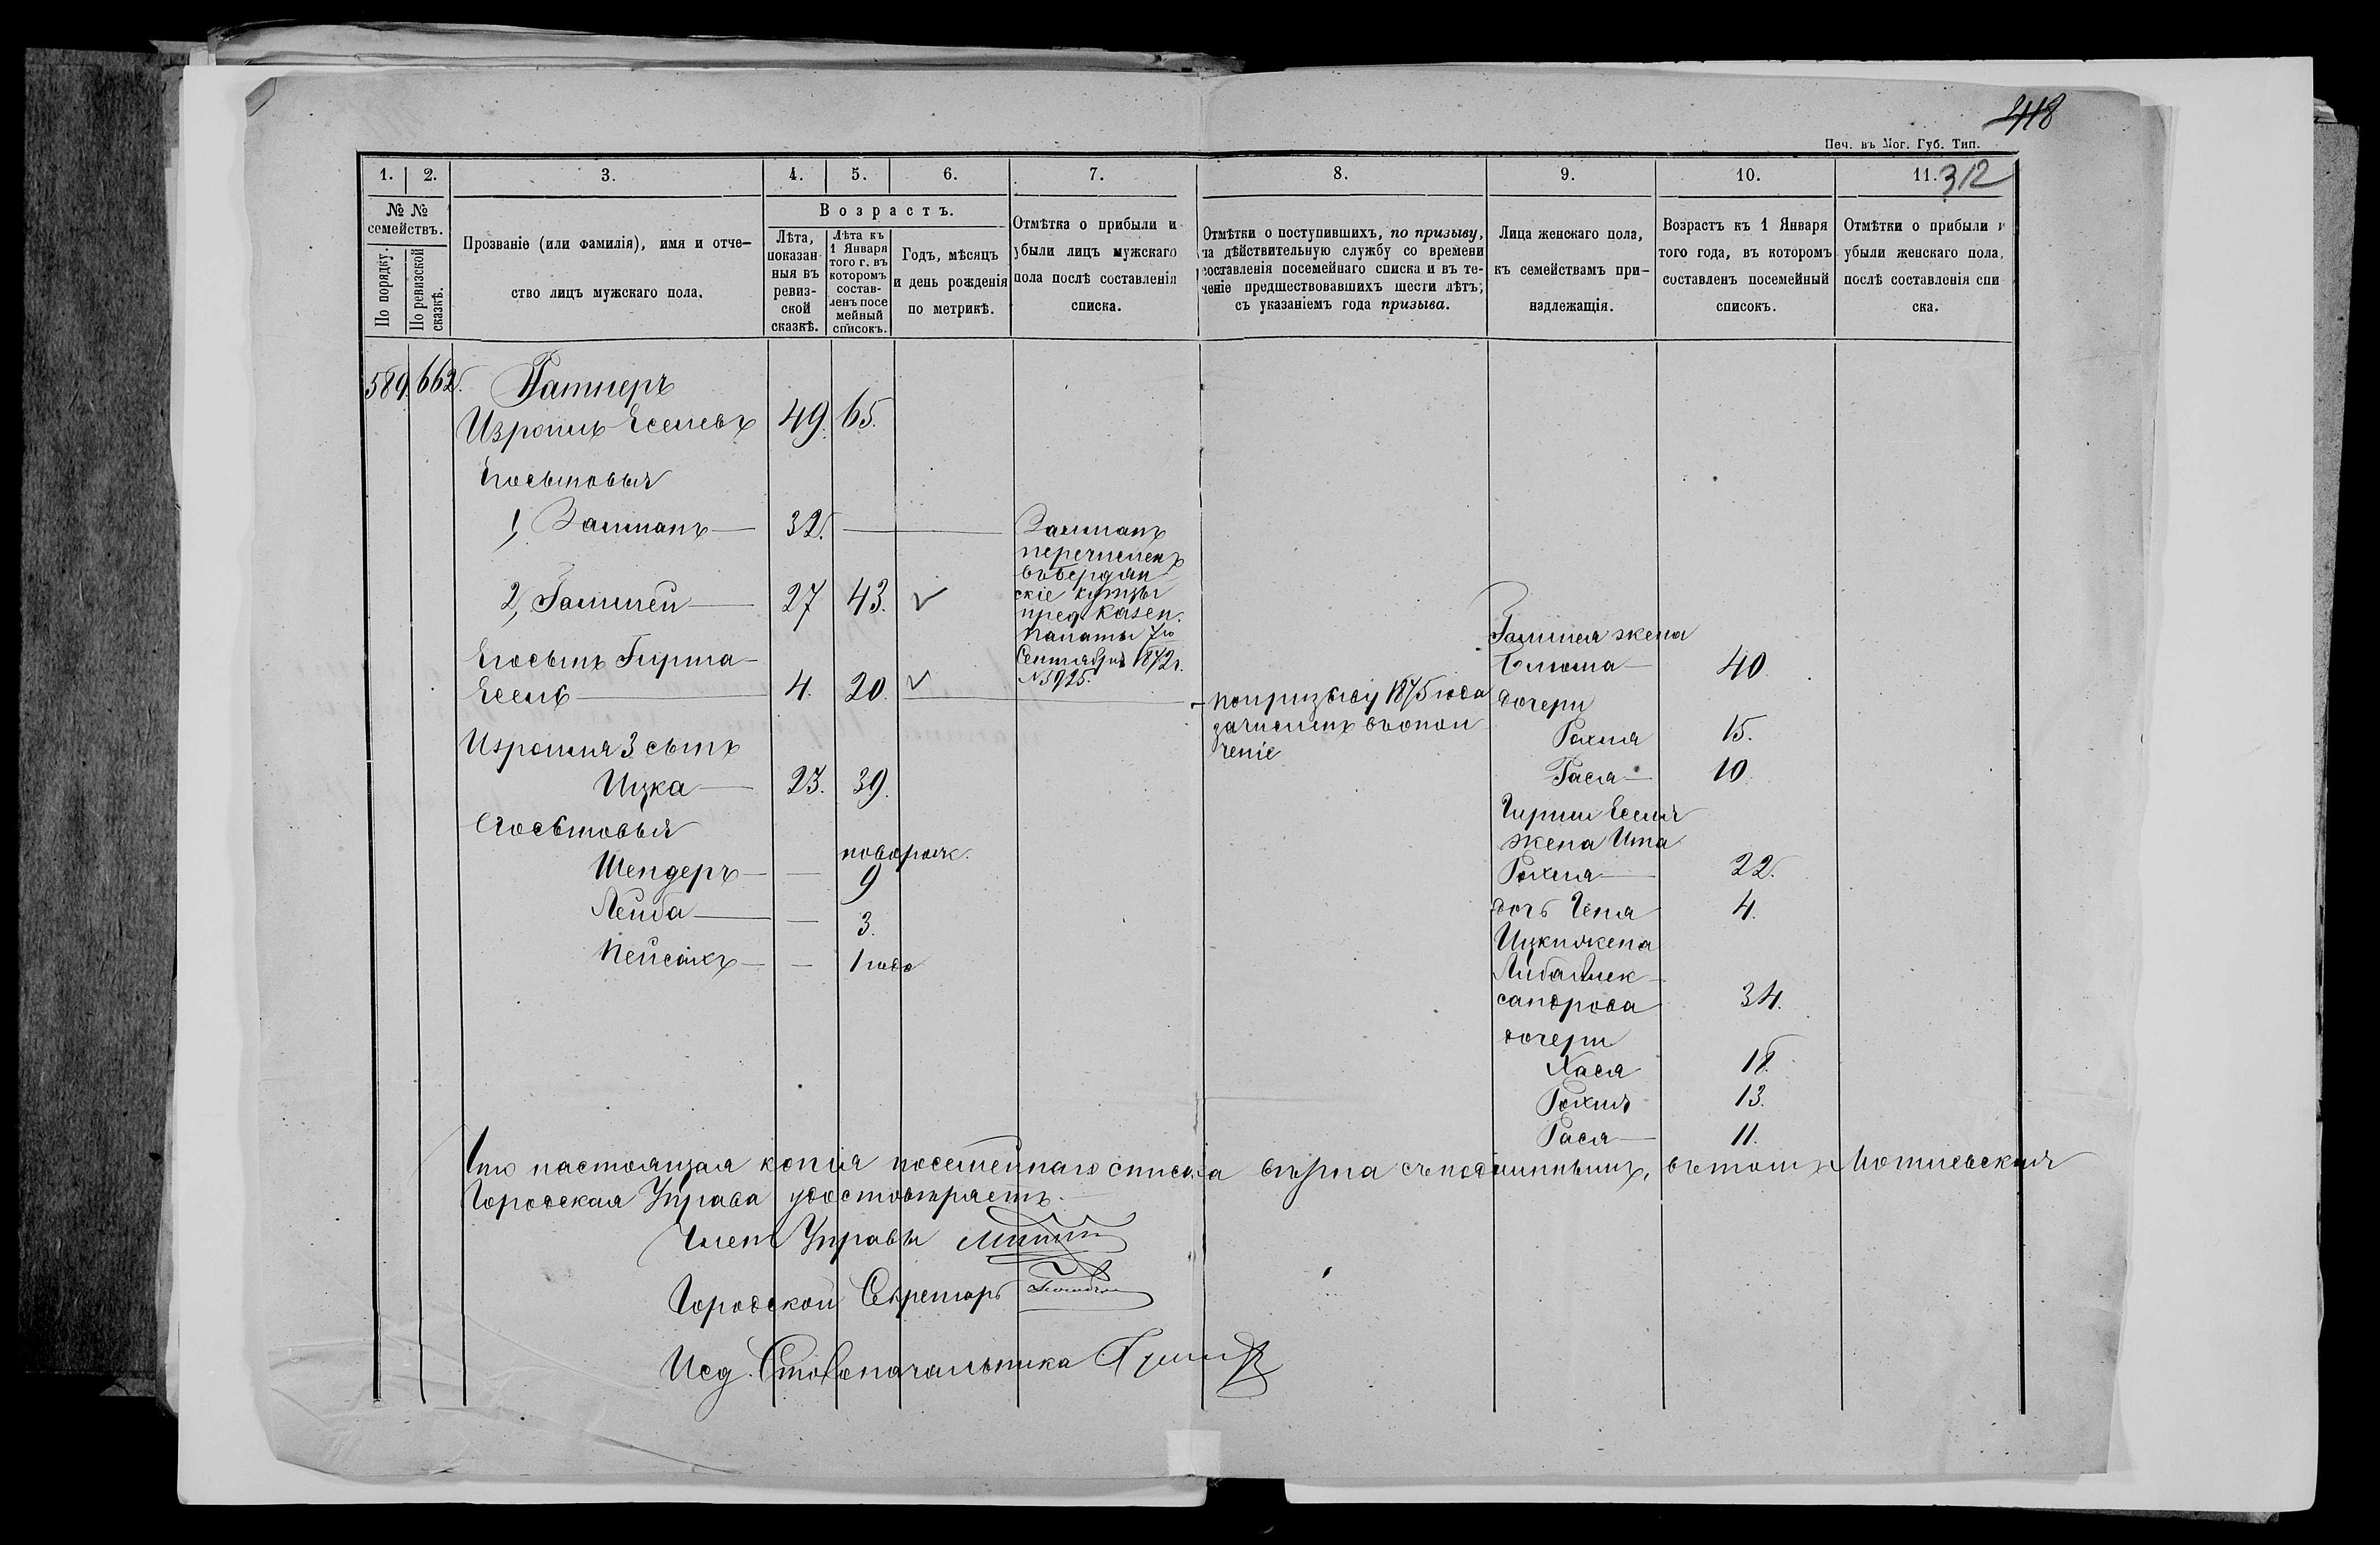 418
Печ. въ Мог. Губ. Тип.
1. 2. 3. 4. 5. 6. 7. 8. 9. 10. 11. 312
№ № семействъ.
По порядку.
По ревизской сказкѣ.
Прозваніе (или фамилія), имя и отче-
ство лицъ мужскаго пола.
Возрастъ.
Лѣта,
показан-
ныя въ
ревиз-
ской
сказкѣ.
Лѣта къ
1 Января
того г. въ
которомъ
состав-
ленъ посе
мейный
списокъ.
Годъ, мѣсяцъ
и день рожденія
по метрикѣ.
Отмѣтка о прибыли и
убыли лицъ мужскаго
пола послѣ составленія
списка.
Отмѣтки о поступившихъ, по призыву,
на дѣйствительную службу со времени
составленія посемейнаго списка и въ те-
ченіе предшествовавшихъ шести лѣтъ;
съ указаніемъ года призыва.
Лица женскаго пола,
къ семействамъ при-
надлежащія.
Возрастъ къ 1 Января
того года, въ которомъ
составленъ посемейный
списокъ.
Отмѣтки о прибыли и
убыли женскаго пола,
послѣ составленія спи
ска.
589. 662.
Изроиль Еселевъ 49. 65.
Его сыновья
1, Залманъ 32.
Залманъ
перечисленъ
въ Бердян
скіе купцы
пред. Казен.
Палаты 7го
Сентября 1872 г.
№ 5925.
2, 27 43.
Его сынъ Гирша-
Есель 4. 20.
по призыву 1875 года
зачисленъ въ опол
ченіе
Изроиля 3 сынъ
Ицка 23. 39.
Его сыновья
новорож.
Шендеръ — 9
Лейба — 3.
Пейсахъ — 1 года
жена
Блюма 40.
дочери
Рохля 15.
Гася 10.
Гирши Еселя
жена Ита
Рохля 22.
дочь Геня 4.
Ицки жена
Либа Алек
сандрова 34.
дочери
Хася 18.
Рохля 13.
Гася 11.
Что настоящая копія посемейнаго списка вѣрна съ подлиннымъ, въ томъ Могилевская
Городская Управа удостовѣряетъ.
Членъ Управы
Городской Секретарь
Исд. Столоначальника